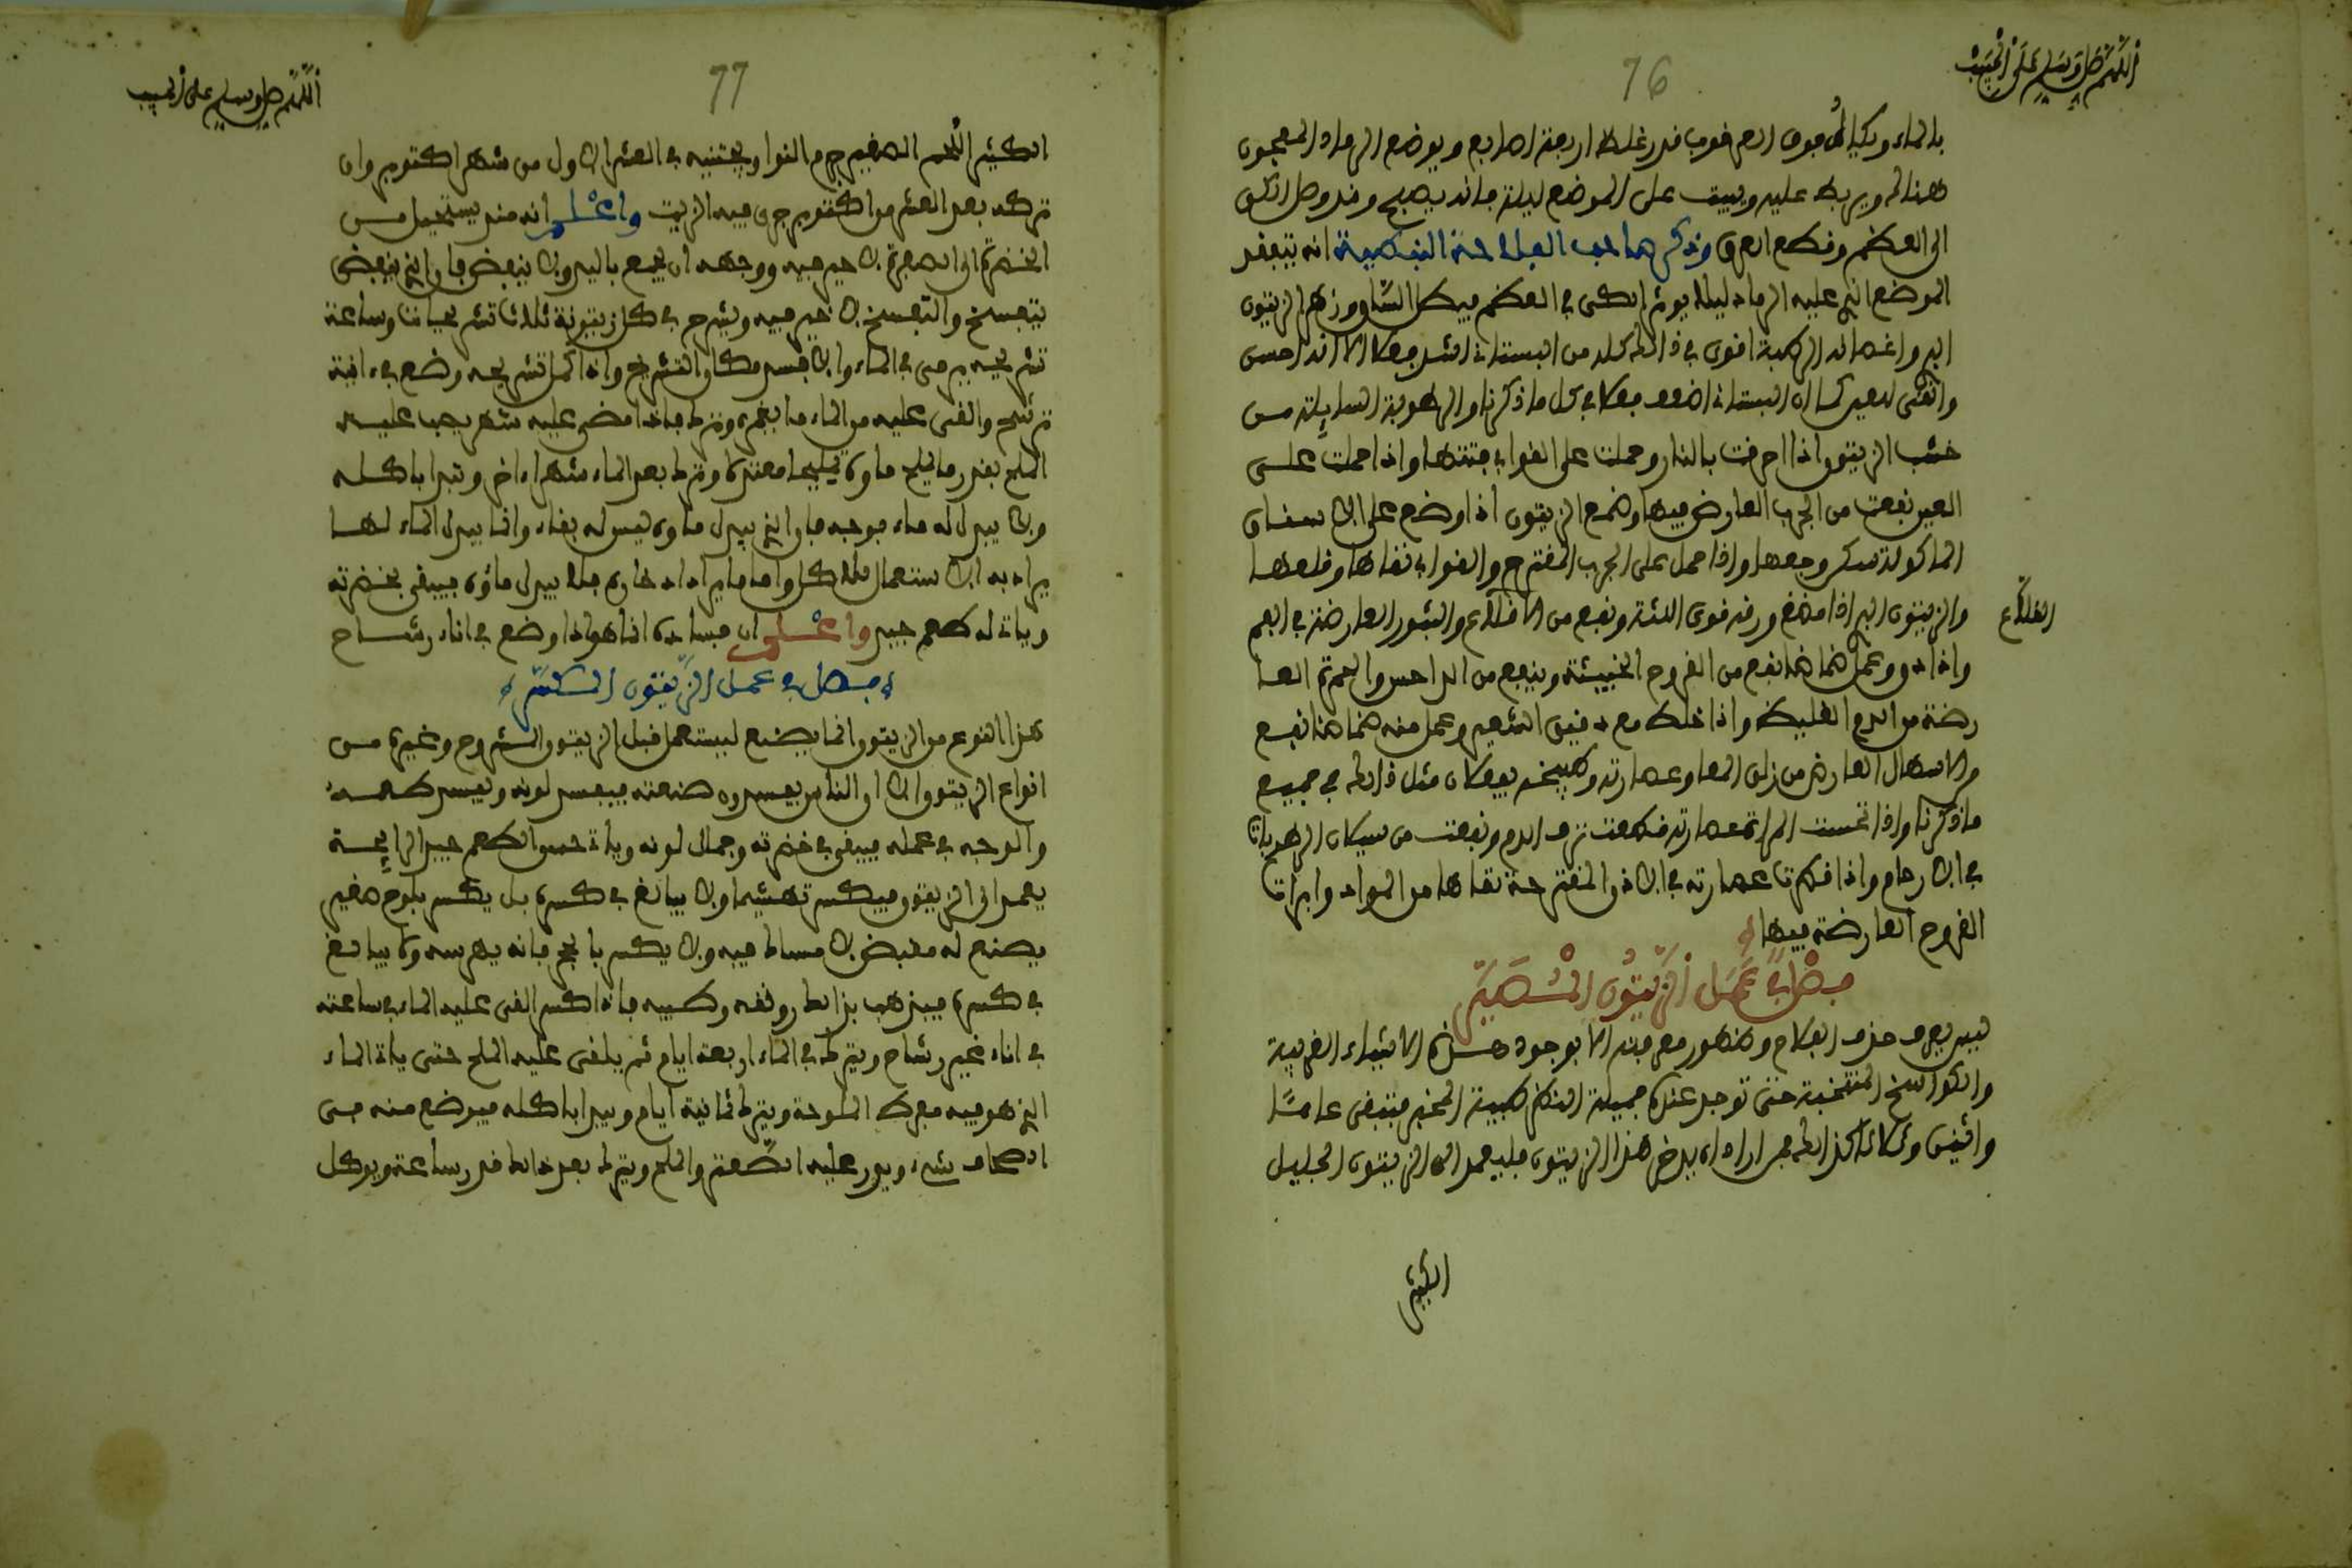 اللهم صل وسلم على الحبيب
76
بالماء ويكال فوق العرقوب قدر غلظ اربعة اصابع ويوضع الرماد المعجون
هنالك ويربط عليه ويبيت على الموضع ليلة فانه يصبح وقد وصل الكي
الى العظم وقطع العرق وذكر صاحب الفلاحة النبطية انه يتفقد
الموضع الذي عليه الرماد ليلا يوثر الكي في العظم فيبطل الساق وزهر الزيتون
البري واغصانه الرطبة اقوى في ذالك كله من البستاني اشد فعلا الا انه احسن
وانقى للعين كما ان البستاني اضعف فعلا في كل ما ذكرنا والرطوبة السايلة من
خشب الزيتون اذا احرقت بالنار وحملت على القوابي فتتها واذا حملت على
العين نفعت من الجرب العارض فيها وصمغ الزيتون اذا وضع على الاسنان
الماكولة سكن وجعها واذا حمل على الجرب المقترح والقوابي نقاها وقلعها
والزيتون البري اذا مضغ ورقه قوى اللثة ونفع من القلاع والبثور العارضة في الفم
القلاع
واذا دق وعمل ضمادا نفع من القروح الخبيثة وينفع من الداحس والحمرة العا
رضة من الدم الغليظ واذا خلط مع دقيق الشعير وعمل منه ضمادا نفع
من الاسهال العارض من زلق المعا وعصارته وطبيخه يفعلان مثل ذالك في جميع
ما ذكرنا واذا تحست المراة عصارته قطعت نزف الدم ونفعت من سيلان الرطوبات
في الارحام واذا قطرت عصارته في الاذن المقترحة نقاها من المواد وابرات
القروح العارضة فيها
فصل في عمل الزيتون المشهير
ليس يعرف حذف الكلام وضهور معرفته الا بوجود هذه الاشياء الغريبة
والكوامخ المنتخبة حتى توجد عنده جميلة النظر طيبة المخبر فتبقى عاما
واثنين وثلاثا كذالك فمن اراد ان يدخر هذا الزيتون فليعمد الى الزيتون الجليل
الكثير
اللهم صل وسلم على الحبيب
77
الكثير اللحم الصغير جرم النوا ويجتنيه في العشر الاول من شهر اكتوبر وان
تركه بعد العشر من اكتوبر جرى فيه الزيت واعلم انه منذ يستحيل من
الخضرة الى الصفرة لا خير فيه ووجهه ان يجمع باليد ولا ينفض فان الذي ينفض
يتفسخ والتفسخ لا خير فيه ويشرح في كل زيتونة ثلاث تشريحات وساعة
تشريحه يرمى في الماء والا فسد مكان التشريح واذا كمل تشريحه وضع في انية
ترشح والقى عليه من الماء ما يغمره وترك فاذا مضى عليه شهر يجب عليه
الملح بقدر ما يملح ماوه تمليحا معتدلا وترك بعد الماء شهرا اخر وتبدا باكله
ولا يبدل له ماء بوجه فان الذي يبدل ماوه ليس له بقاء وانما يبدل الماء لما
يراد به الاستعمال للاكل واما ما يراد ادخاره فلا يبدل ماؤه فيبقى بخضرته
وياتي له طعم جيد واعلم ان فساده انما هو اذا وضع في اناء رشاح
فصل في عمل الزيتون المكسر
هذا النوع من الزيتون انما يصنع ليستعمل قبل الزيتون المشروح وغيره من
انواع الزيتون الا ان الناس يفسدون صنعته فيفسد لونه ويفسد طعمه
والوجه في عمله فيبقى في خضرته وجمال لونه وياتي حسن الطعم جيد الرايحة
يعمد الى الزيتون فيكسر تهشيما ولا يبالغ في كسره بل يكسر بلوح صغير
يصنع له مقبض لامساك فيه ولا يكسر بالحجر فانه يهرسه ولا يبالغ
في كسره فيذهب بذالك رونقه وطيبه فاذا كسر القى عليه الماء في ساعته
في اناء غير رشاح ويترك في الماء اربعة ايام ثم يلقى عليه الملح حتى ياتي الماء
الذي هو فيه مفرط الملوحة ويترك ثمانية ايام ويبدا باكله فيوضع منه في
الصحاف شيء ويذر عليه الصعتر والملح ويترك بعد ذالك قدر ساعة ويوكل